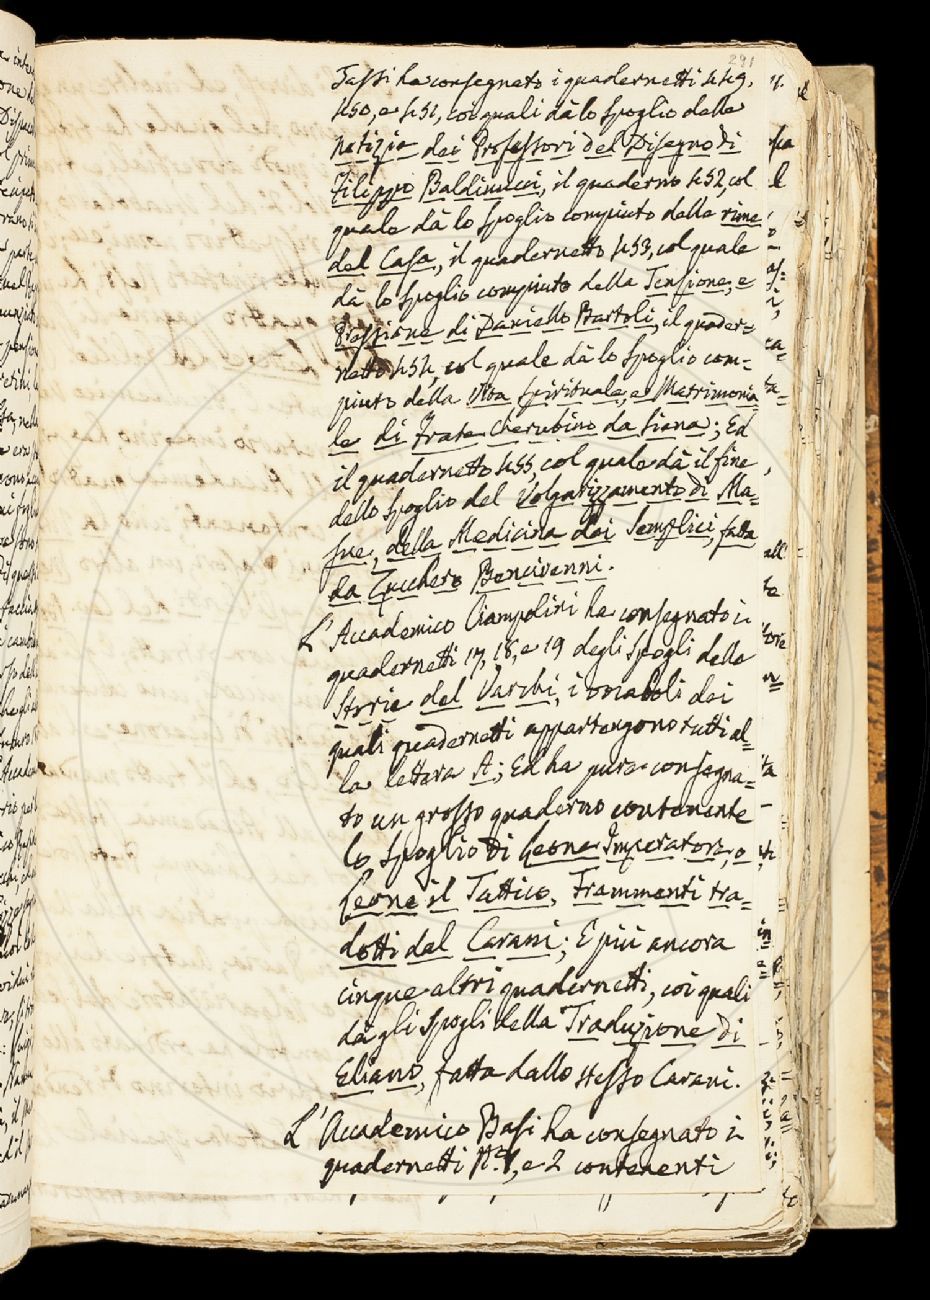 291
Tassi ha consegnato i quadernetti 449,
450, e 451, coi quali dà lo spoglio delle
notizie dei Professori del Disegno di
Filippo Baldinucci, il quaderno 452, col
quale dà lo spoglio compiuto delle rime
del Casa, il quadernetto 453, col quale
dà lo spoglio compiuto della Tensione, e
Pressione di Daniello Bartoli, il quader=
netto 454, col quale dà lo spoglio com=
piuto della Vita Spirituale, e Matrimonia
le di Frate Cherubino da Siena; Ed
il quadernetto 455, col quale dà il fine
dello spoglio del Volgarizzamento di Me=
sue, della Medicina dei Semplici, fatta
da Zucchero Bencivenni.
L'Accademico Ciampolini ha consegnato i
quadernetti 17, 18, e 19 degli Spogli delle
Storie del Varchi, i vocaboli dei
quali quadernetti appartengono tutti al=
la lettera A; Ed ha pure consegna=
to un grosso quaderno contenente
lo Spoglio di Leone Imperatore, o
Leone il Tattico, Frammenti tra=
dotti dal Carani; E più ancora
cinque altri quadernetti, coi quali
dà gli spogli della Traduzione di
Eliano, fatta dallo stesso Carani.
L'Accademico Basi ha consegnato i
quadernetti N.° 1, e 2 contenenti